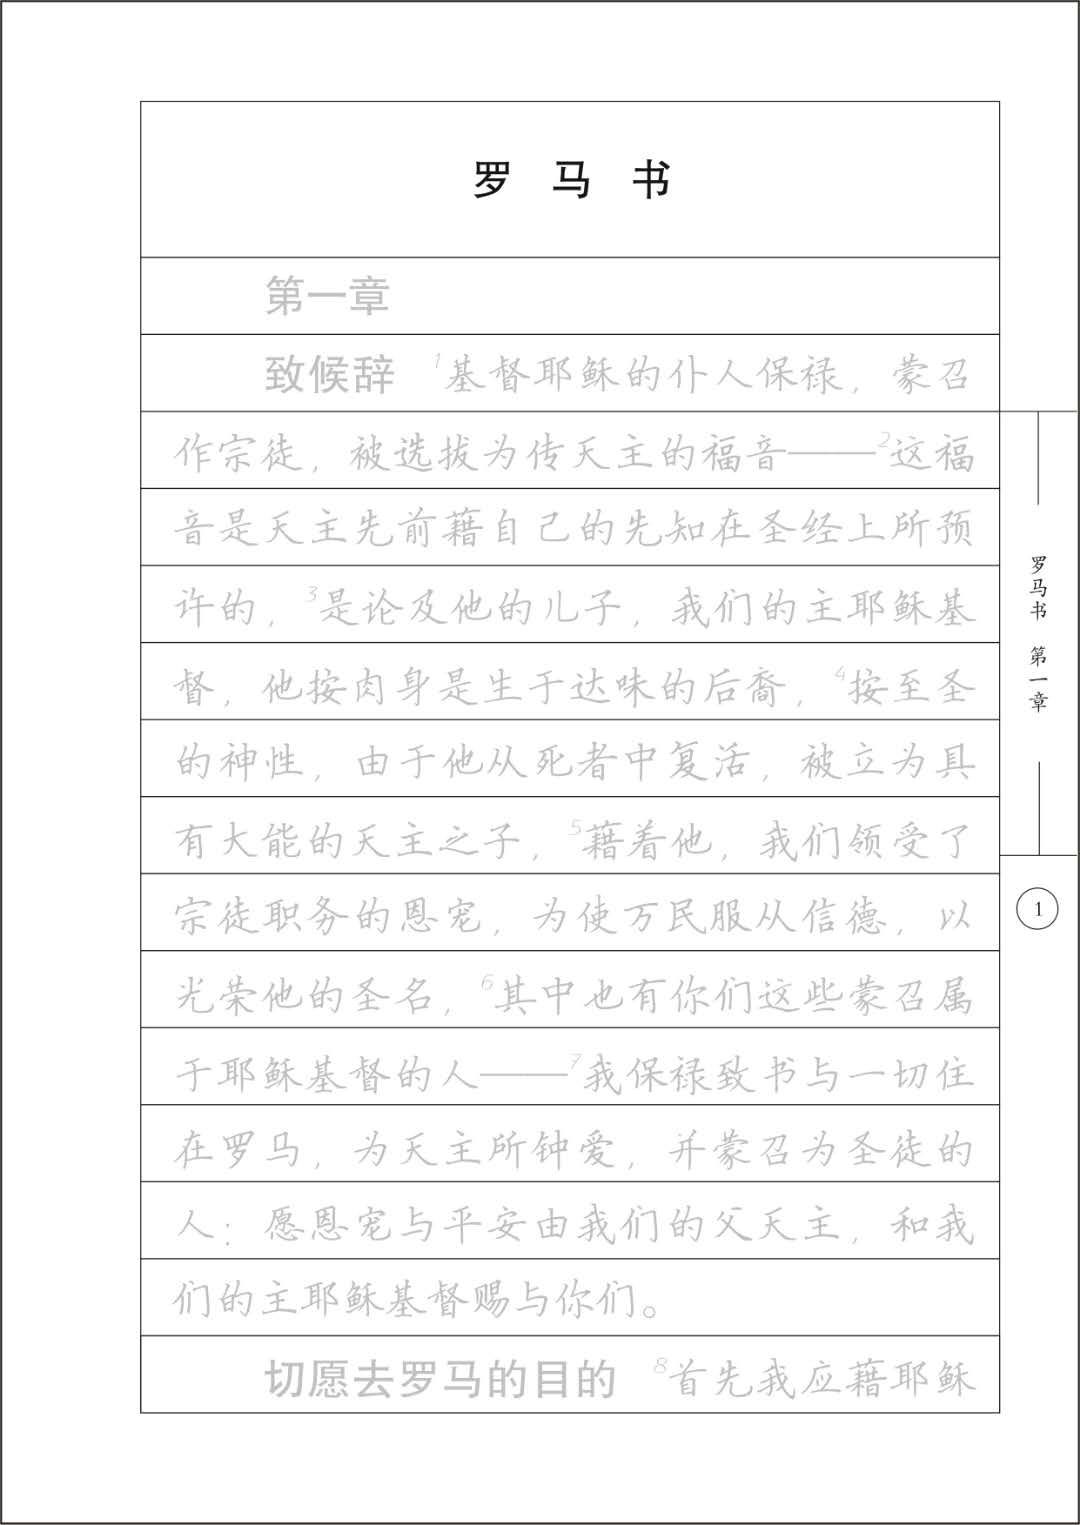 罗 马 书
第一章
致候辞 1基督耶稣的仆人保禄，蒙召
作宗徒，被选拔为传天主的福音——2这福
音是天主先前藉自己的先知在圣经上所预
许的，3是论及他的儿子，我们的主耶稣基
督，他按肉身是生于达味的后裔，4按至圣
的神性，由于他从死者中复活，被立为具
有大能的天主之子，5藉着他，我们领受了
宗徒职务的恩宠，为使万民服从信德，以
光荣他的圣名，6其中也有你们这些蒙召属
于耶稣基督的人——7我保禄致书与一切住
在罗马，为天主所钟爱，并蒙召为圣徒的
人：愿恩宠与平安由我们的父天主，和我
们的主耶稣基督赐与你们。
切愿去罗马的目的 8首先我应藉耶稣
罗马书 第一章
1